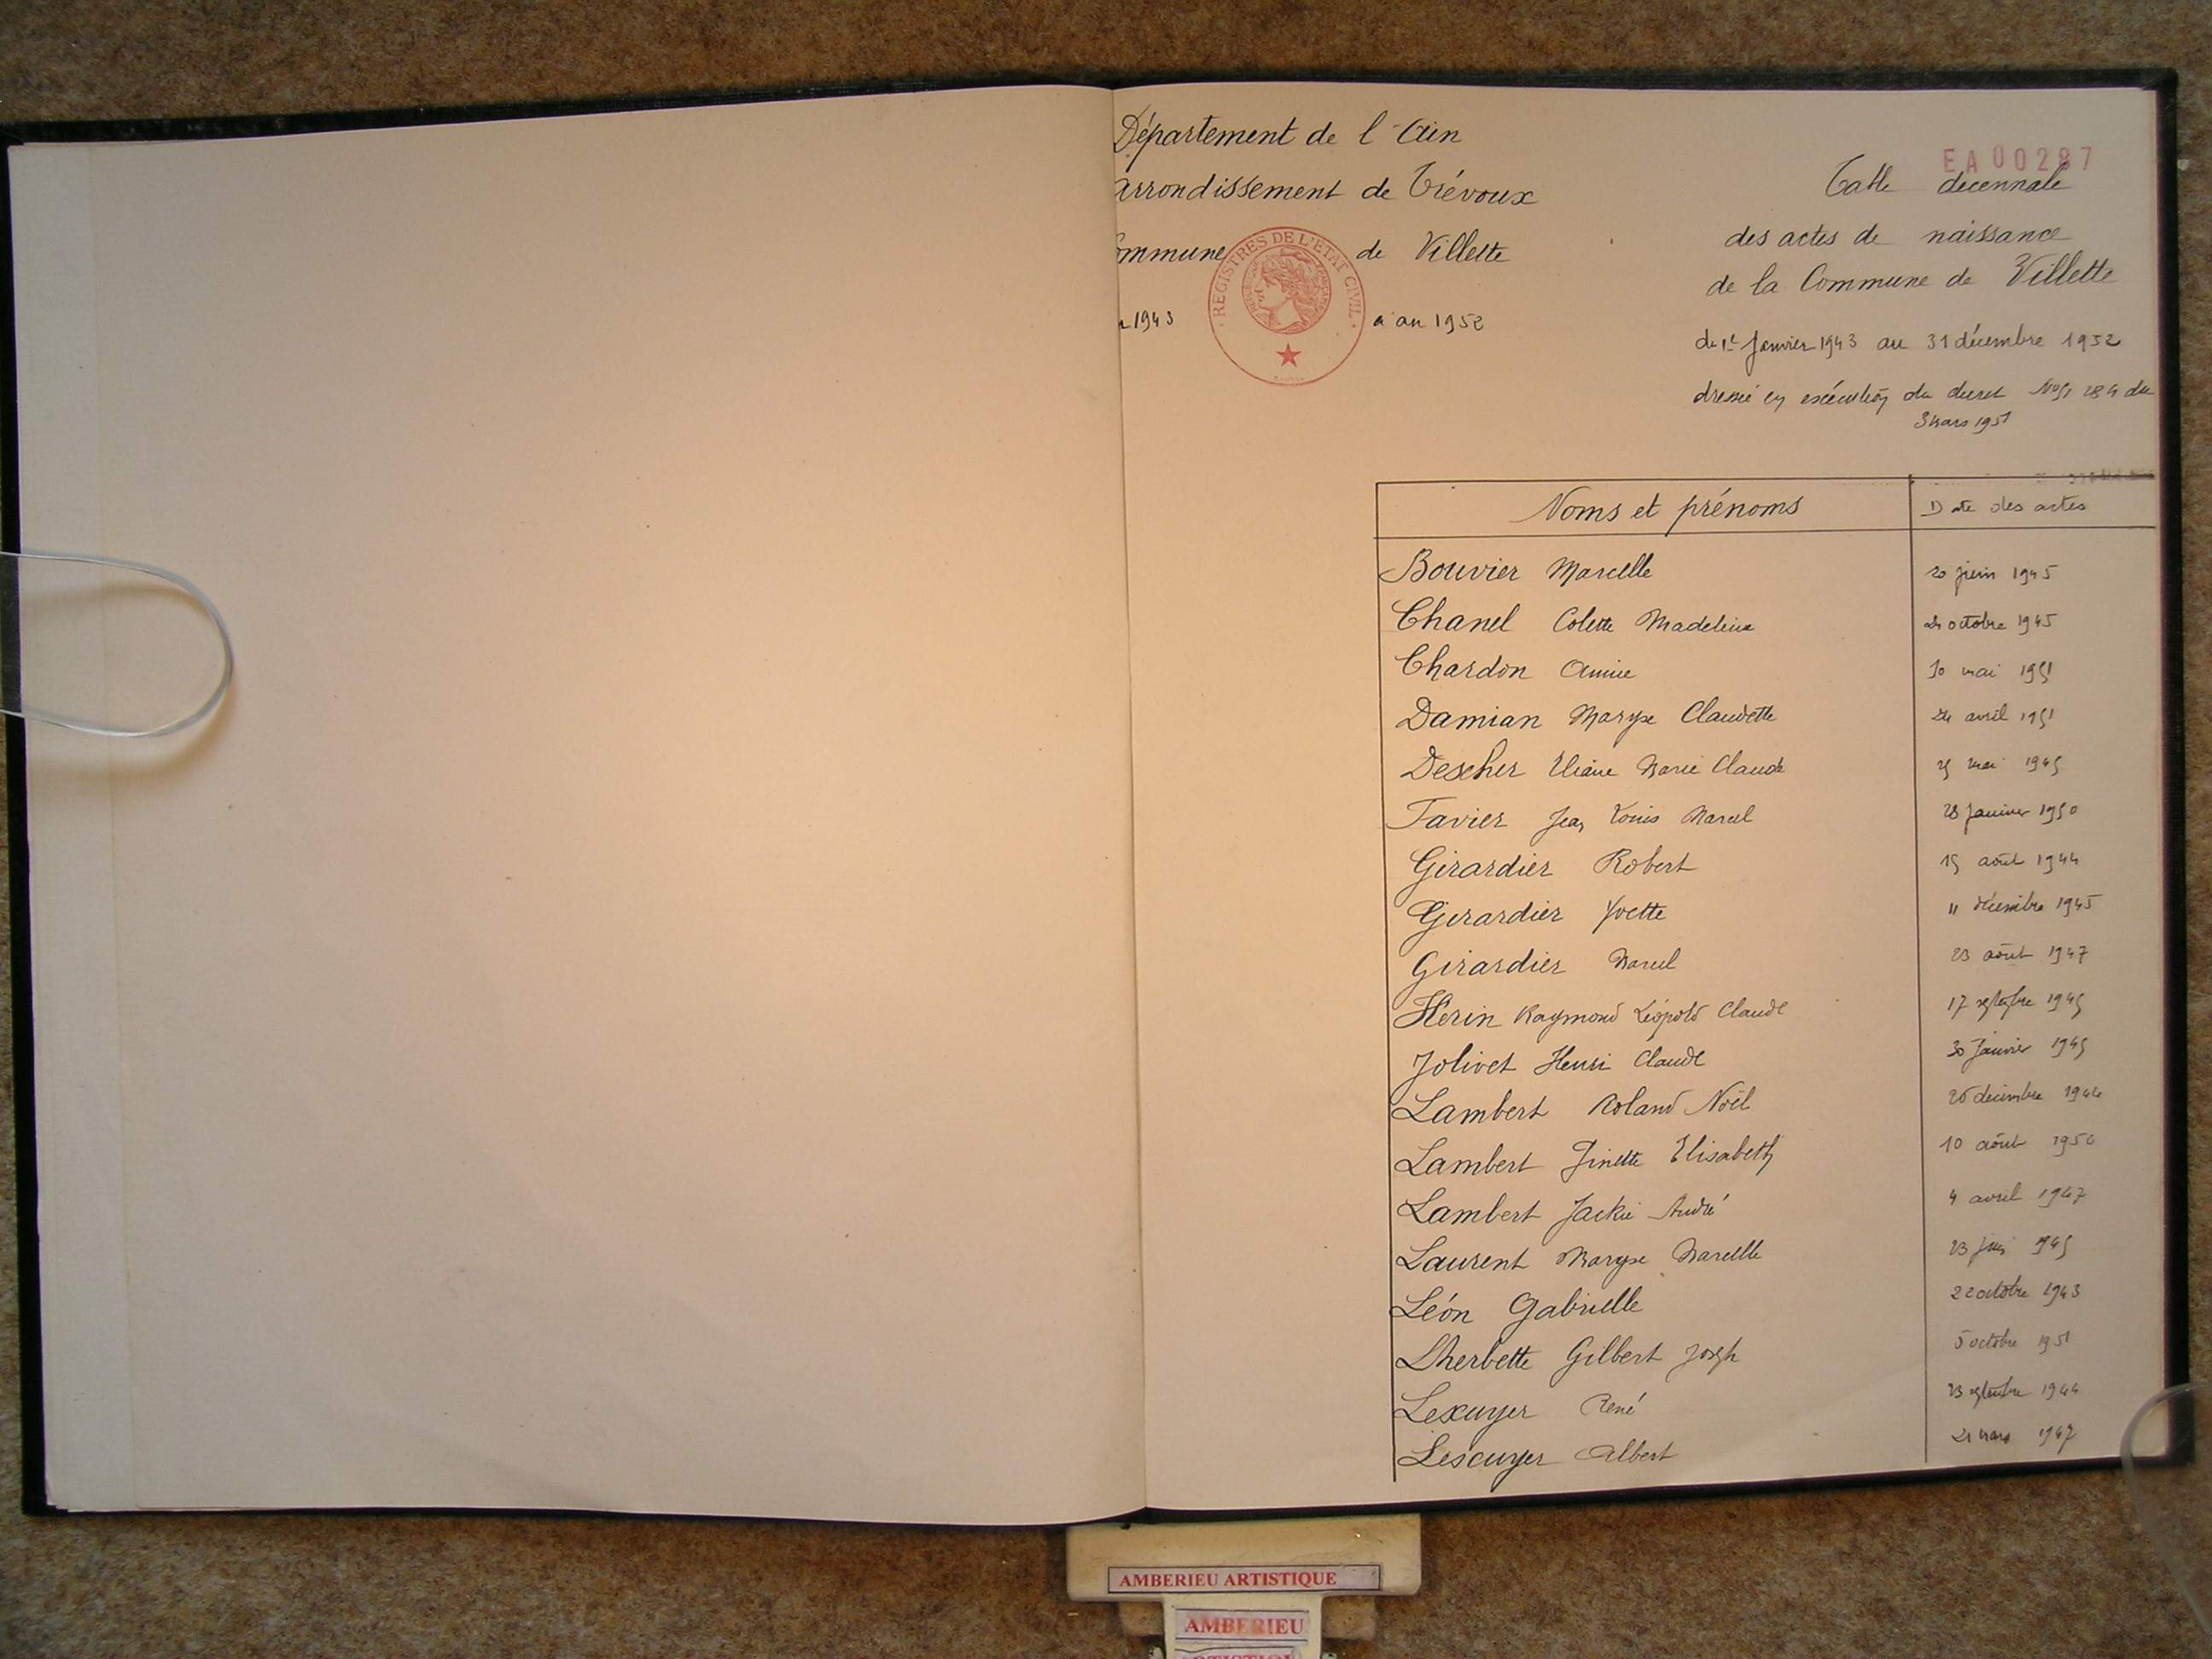 Département de l'Ain
arrondissement de Trévoux
ommune de Villette
REGISTRES DE L'ETAT CIVIL
1943 à an 1952
EA 00287
Table décennale
des actes de naissance
de la Commune de Villette
du 1er Janvier 1943 au 31 décembre 1952
dressé en exécution du décret N°51 284 du
3 mars 1951
Noms et prénoms Date des actes
Bouvier Marcelle 20 juin 1945
Chanel Colette Madeleine octobre 1945
Chardon Annie 10 mai 1951
Damian Maryse Claudette 24 avril 1951
Descher Eliane Marie Claude 25 mai 1945
Favier Jean Louis Marcel 28 Janvier 1950
Girardier Robert 15 août 1944
Girardier Yvette 11 décembre 1945
Girardier Marcel 23 août 1947
Hérin Raymond Léopold Claude 17 septembre 1945
Jolivet Henri Claude 30 Janvier 1945
Lambert Roland Noël 25 décembre 1944
Lambert Ginette Elisabeth 10 août 1950
Lambert Jackie André 4 avril 1947
Laurent Maryse Marcelle 23 1945
Léon Gabrielle 22 octobre 1943
Lherbette Gilbert Joseph 5 octobre 1951
Lescuyer René 23 septembre 1944
Lescuyer Albert 21 mars 1947
AMBERIEU ARTISTIQUE
AMBERIEU